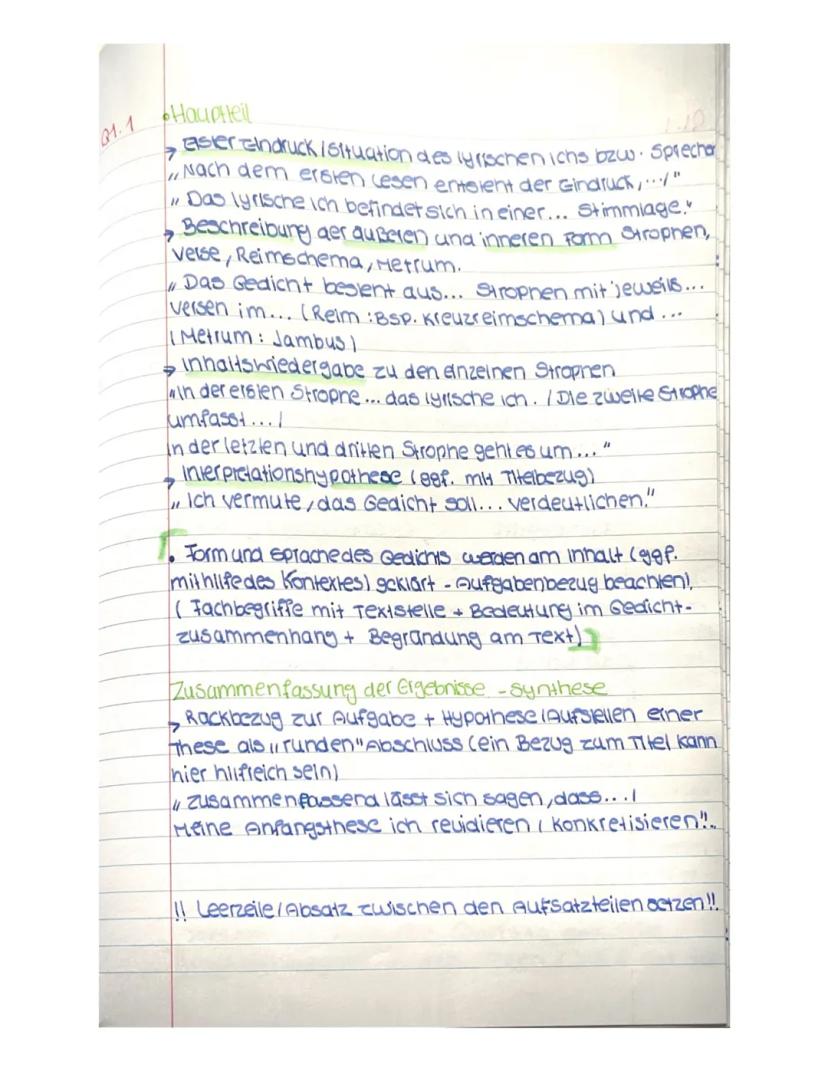 Q1.1
• Hauptteil
→ Erster Eindruck / Situation des lyrischen Ichs bzw. Sprecher
„Nach dem ersten Lesen entsteht der Eindruck, .../"
„Das lyrische Ich befindet sich in einer... Stimmlage."
→ Beschreibung der äußeren und inneren Form Strophen,
Verse, Reimschema, Metrum.
„Das Gedicht besteht aus... Strophen mit jeweils...
Versen im... (Reim: Bsp. Kreuzreimschema) und ...
(Metrum: Jambus)
→ Inhaltswiedergabe zu den einzelnen Strophen
„In der ersten Strophe... das lyrische Ich. / Die zweite Strophe
umfasst... /
In der letzten und dritten Strophe geht es um..."
→ Interpretationshypothese (ggf. mit Titelbezug)
„Ich vermute, das Gedicht soll... verdeutlichen."
• Form und Sprache des Gedichts werden am Inhalt (ggf.
mithilfe des Kontextes) geklärt - Aufgabenbezug beachten!,
(Fachbegriffe mit Textstelle + Bedeutung im Gedicht-
zusammenhang + Begründung am Text)
Zusammenfassung der Ergebnisse - Synthese
→ Rückbezug zur Aufgabe + Hypothese / Aufstellen einer
These als „runden" Abschluss (ein Bezug zum Titel kann
hier hilfreich sein)
„Zusammenfassend lässt sich sagen, dass... /
Meine Anfangsthese ich revidieren / konkretisieren"..
!! Leerzeile / Absatz zwischen den Aufsatzteilen setzen !!